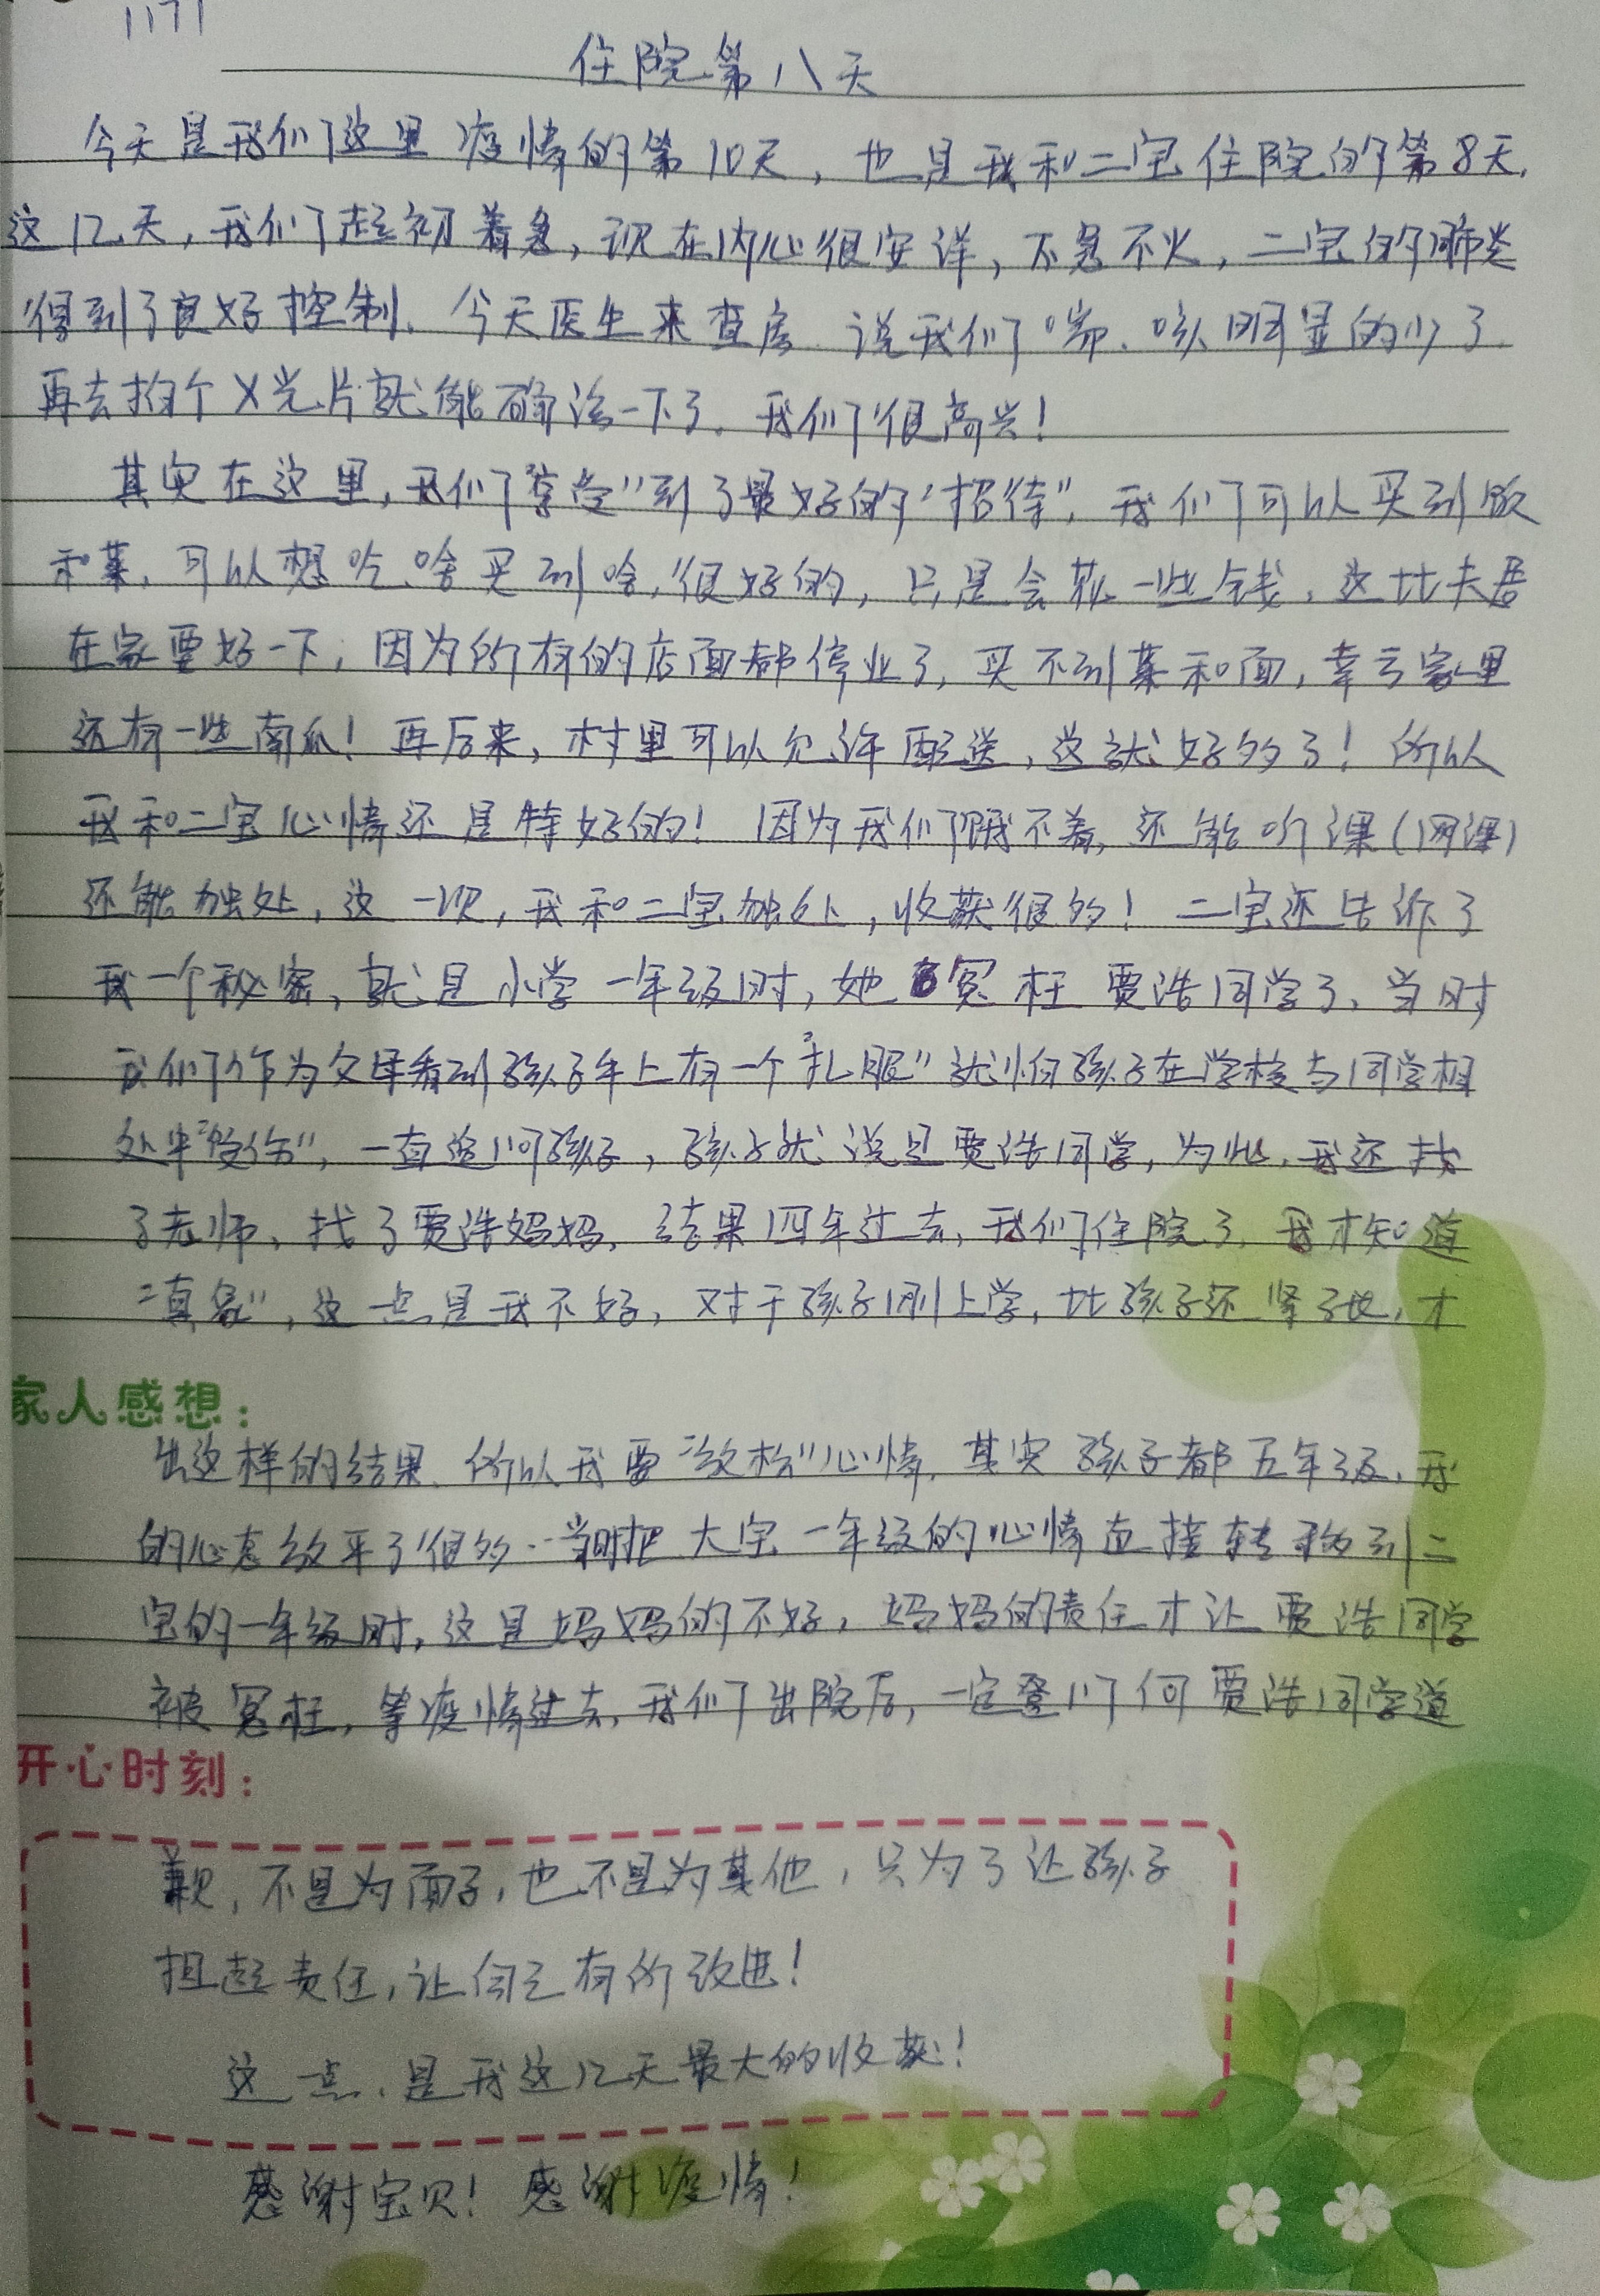 1171
住院第八天
今天是我们这里疫情的第10天，也是我和二宝住院的第8天，
这12天，我们起初着急，现在内心很安详，不急不火，二宝的肺炎
得到了良好控制。今天医生来查房，说我们喘、咳明显的少了，
再去拍个X光片就能确诊一下了。我们很高兴！
其实在这里，我们“享受”到了最好的“招待”，我们可以买到饭
和菜，可以想吃啥买到啥，很好的，只是会花一些钱，这比夫君
在家要好一下，因为所有的店面都停业了，买不到菜和面，幸亏家里
还有一些南瓜！再后来，村里可以允许配送，这就好多了！所以
我和二宝心情还是特好的！因为我们饿不着，还能听课（网课）
还能独处，这一次，我和二宝独处，收获很多！二宝还告诉了
我一个秘密，就是小学一年级时，她冤枉贾浩同学了，当时
我们作为父母看到孩子手上有一个“扎眼”就怕孩子在学校与同学相
处中“受伤”，一直追问孩子，孩子就说是贾浩同学，为此，我还找
了老师，找了贾浩妈妈，结果四年过去，我们住院了，我才知道
“真象”，这一点是我不好，对于孩子刚上学，比孩子还紧张，才
家人感想：
出这样的结果，所以我要“放松”心情，其实孩子都五年级，我
的心态放平了很多，当时把大宝一年级的心情直接转移到二
宝的一年级时，这是妈妈的不好，妈妈的责任才让贾浩同学
被冤枉，等疫情过去，我们出院后，一定登门向贾浩同学道
开心时刻：
歉，不是为面子，也不是为其他，只为了让孩子
担起责任，让自己有所改进！
这一点，是我这12天最大的收获！
感谢宝贝！感谢疫情！